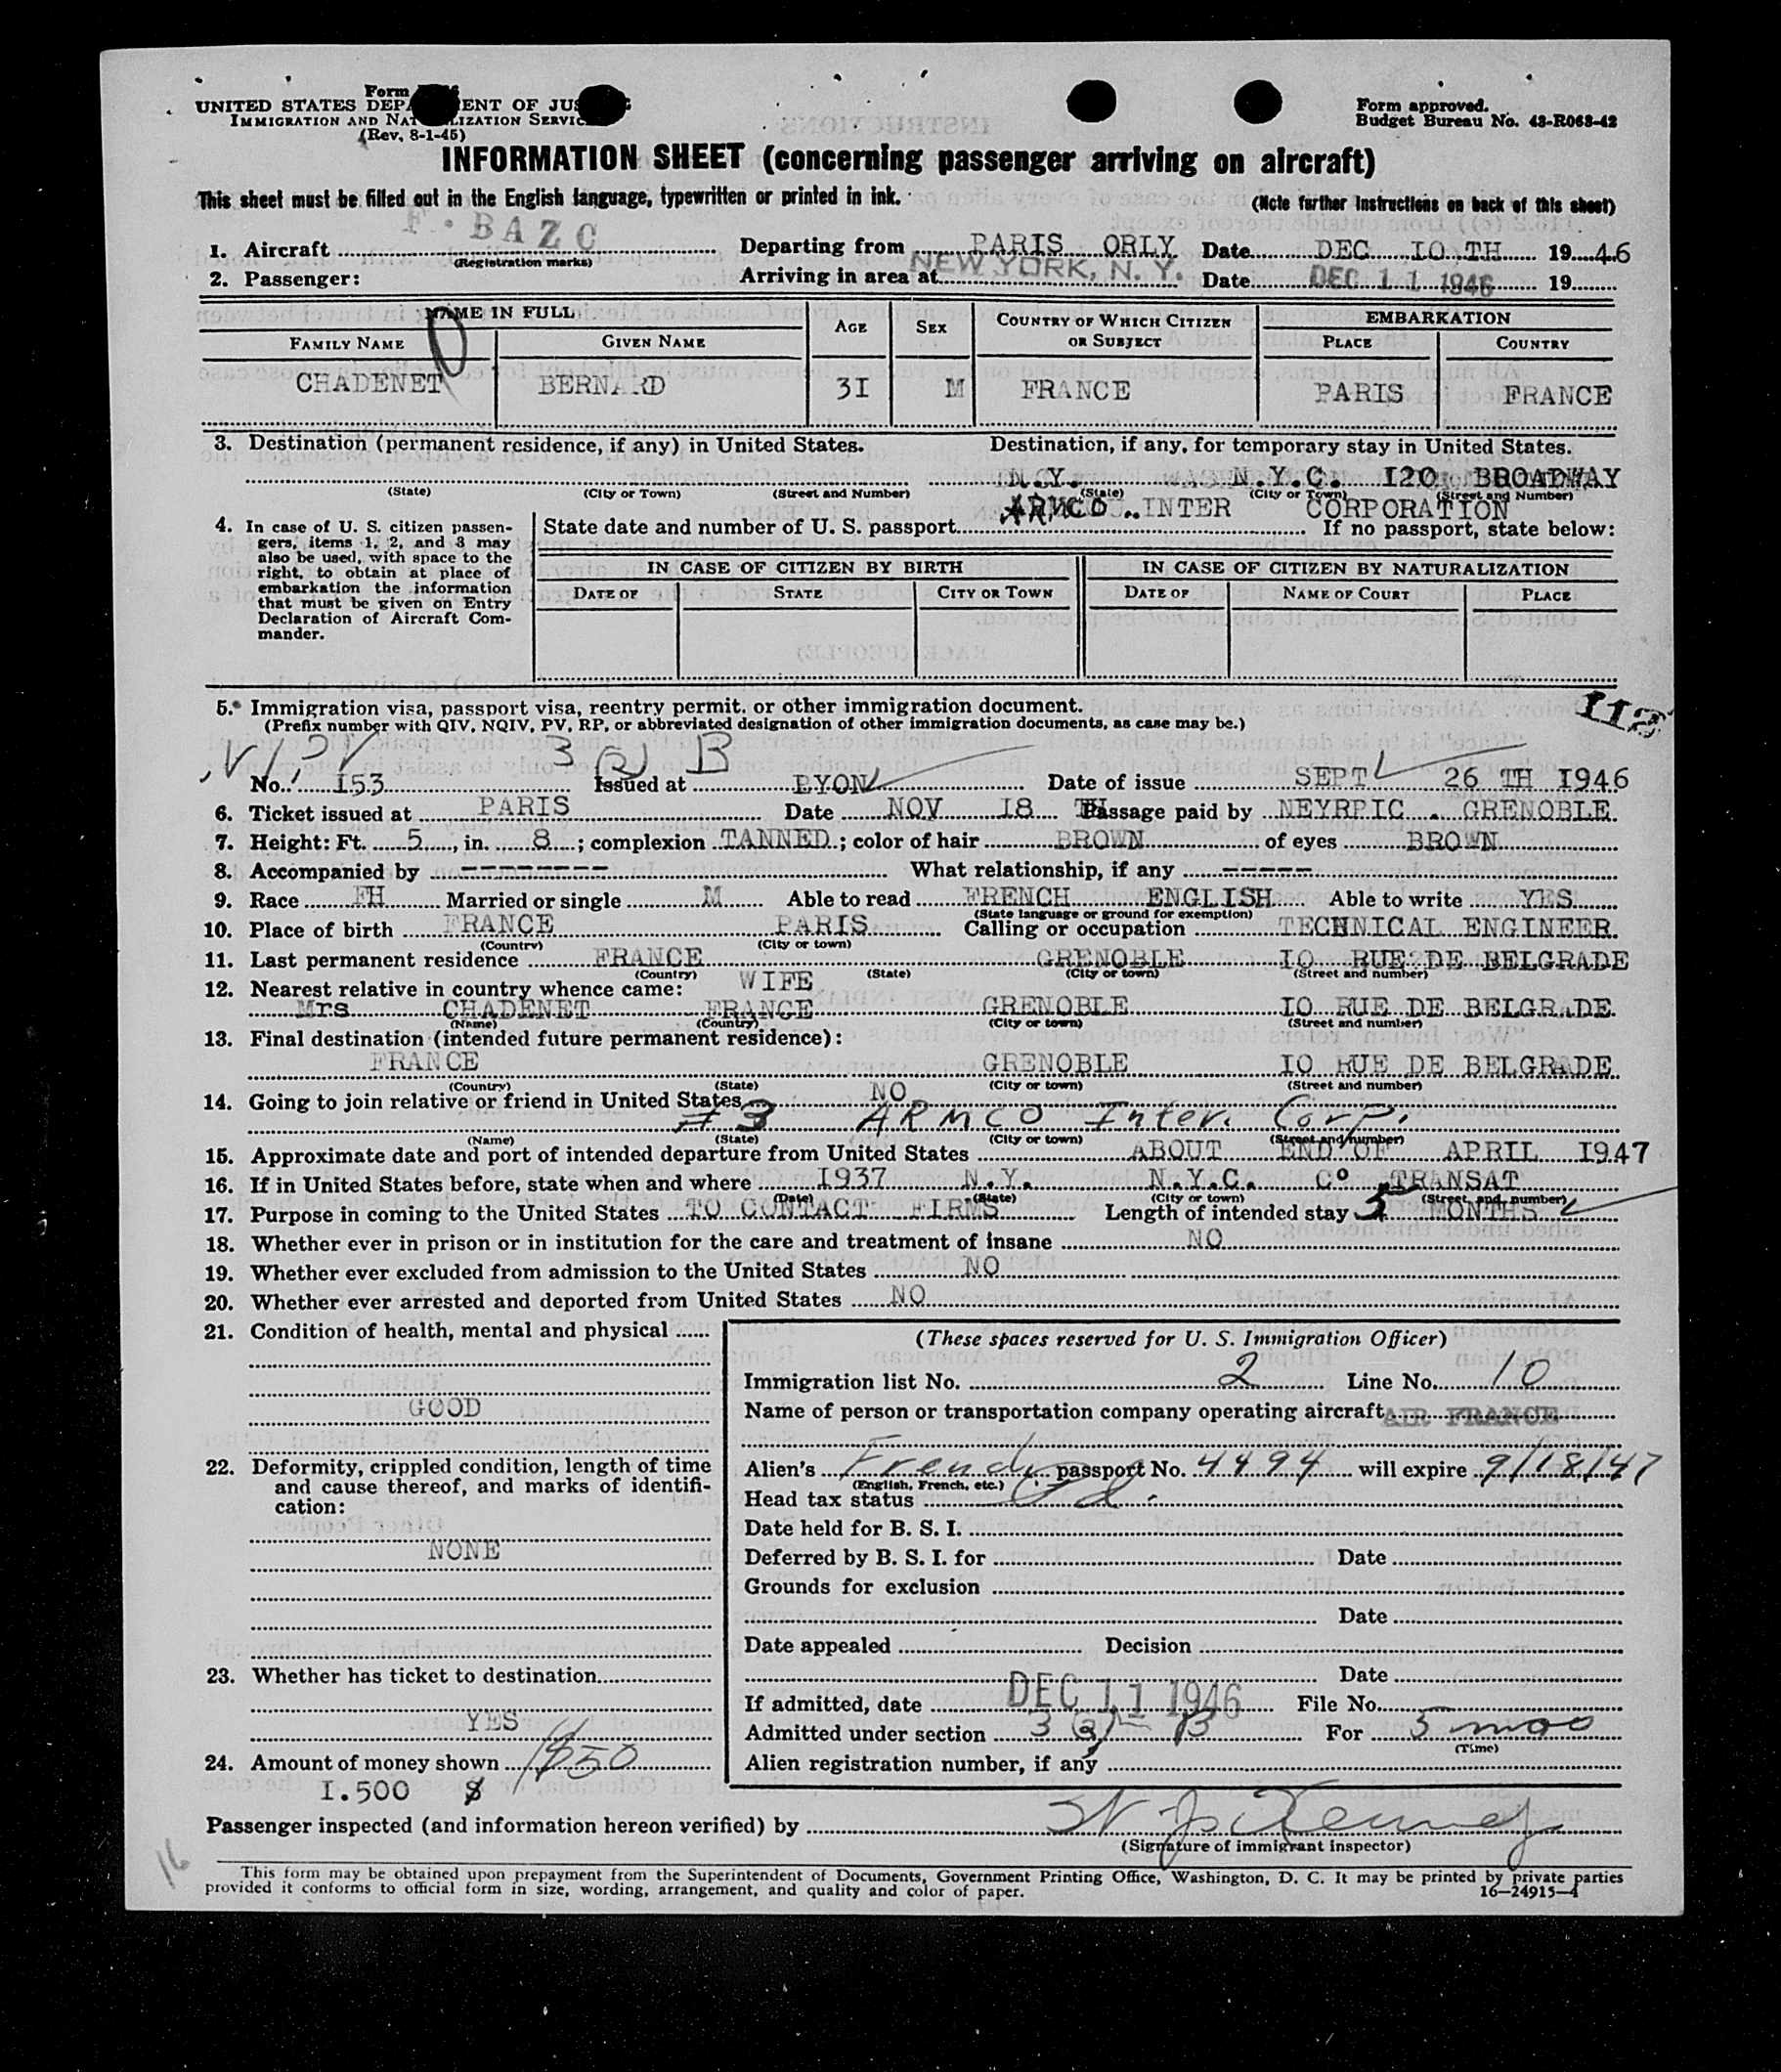 Form
UNITED STATES DEPA ENT OF JUS
IMMIGRATION AND NAT LIZATION SERVIC
(Rev. 8-1-45)
Form approved.
Budget Bureau No. 43-R063-42
INFORMATION SHEET (concerning passenger arriving on aircraft)
This sheet must be filled out in the English language, typewritten or printed in ink.
(Note further instructions on back of this sheet)
1. Aircraft F. BAZC Departing from PARIS ORLY Date DEC IO TH 19 46
(Registration marks)
2. Passenger: Arriving in area at NEW YORK, N. Y. Date DEC 11 1946 19
NAME IN FULL AGE SEX COUNTRY OF WHICH CITIZEN OR SUBJECT EMBARKATION
FAMILY NAME GIVEN NAME PLACE COUNTRY
CHADENET BERNARD 3I M FRANCE PARIS FRANCE
3. Destination (permanent residence, if any) in United States. Destination, if any, for temporary stay in United States.
N.Y. N.Y.C. I20 BROADWAY
(State) (City or Town) (Street and Number) (State) (City or Town) (Street and Number)
ARMCO INTER CORPORATION
4. In case of U. S. citizen passengers, items 1, 2, and 3 may also be used, with space to the right, to obtain at place of embarkation the information that must be given on Entry Declaration of Aircraft Commander.
State date and number of U. S. passport If no passport, state below:
IN CASE OF CITIZEN BY BIRTH IN CASE OF CITIZEN BY NATURALIZATION
DATE OF STATE CITY OR TOWN DATE OF NAME OF COURT PLACE
5. Immigration visa, passport visa, reentry permit, or other immigration document.
(Prefix number with QIV, NQIV, PV, RP, or abbreviated designation of other immigration documents, as case may be.)
112
3 (2) B
No. I53 Issued at LYON Date of issue SEPT 26 TH I946
6. Ticket issued at PARIS Date NOV I8 TH Passage paid by NEYRPIC . GRENOBLE
7. Height: Ft. 5, in. 8; complexion TANNED; color of hair BROWN of eyes BROWN
8. Accompanied by --------- What relationship, if any -----
9. Race FH Married or single M Able to read FRENCH ENGLISH Able to write YES
(State language or ground for exemption)
10. Place of birth FRANCE PARIS Calling or occupation TECHNICAL ENGINEER
(Country) (City or town)
11. Last permanent residence FRANCE GRENOBLE IO RUE DE BELGRADE
(Country) (State) (City or town) (Street and number)
12. Nearest relative in country whence came: WIFE
Mrs CHADENET FRANCE GRENOBLE IO RUE DE BELGRADE
(Name) (Country) (City or town) (Street and number)
13. Final destination (intended future permanent residence):
FRANCE GRENOBLE IO RUE DE BELGRADE
(Country) (State) (City or town) (Street and number)
14. Going to join relative or friend in United States NO
# 3 ARMCO Inter. Corp.
(Name) (State) (City or town) (Street and number)
15. Approximate date and port of intended departure from United States ABOUT END OF APRIL I947
16. If in United States before, state when and where I937 N.Y. N.Y.C. C° TRANSAT
(Date) (State) (City or town) (Street and number)
17. Purpose in coming to the United States TO CONTACT FIRMS Length of intended stay 5 MONTHS
18. Whether ever in prison or in institution for the care and treatment of insane NO
19. Whether ever excluded from admission to the United States NO
20. Whether ever arrested and deported from United States NO
21. Condition of health, mental and physical
GOOD
22. Deformity, crippled condition, length of time and cause thereof, and marks of identification:
NONE
23. Whether has ticket to destination
YES
24. Amount of money shown $50
I.500 $
(These spaces reserved for U. S. Immigration Officer)
Immigration list No. 2 Line No. 10
Name of person or transportation company operating aircraft AIR FRANCE
Alien's French passport No. 4494 will expire 9/18/47
(English, French, etc.)
Head tax status
Date held for B. S. I.
Deferred by B. S. I. for Date
Grounds for exclusion
Date
Date appealed Decision
Date
If admitted, date DEC 11 1946 File No.
Admitted under section 3 (2) B For 5 mos
(Time)
Alien registration number, if any
Passenger inspected (and information hereon verified) by
(Signature of immigrant inspector)
16
This form may be obtained upon prepayment from the Superintendent of Documents, Government Printing Office, Washington, D. C. It may be printed by private parties
provided it conforms to official form in size, wording, arrangement, and quality and color of paper. 16—24915-4